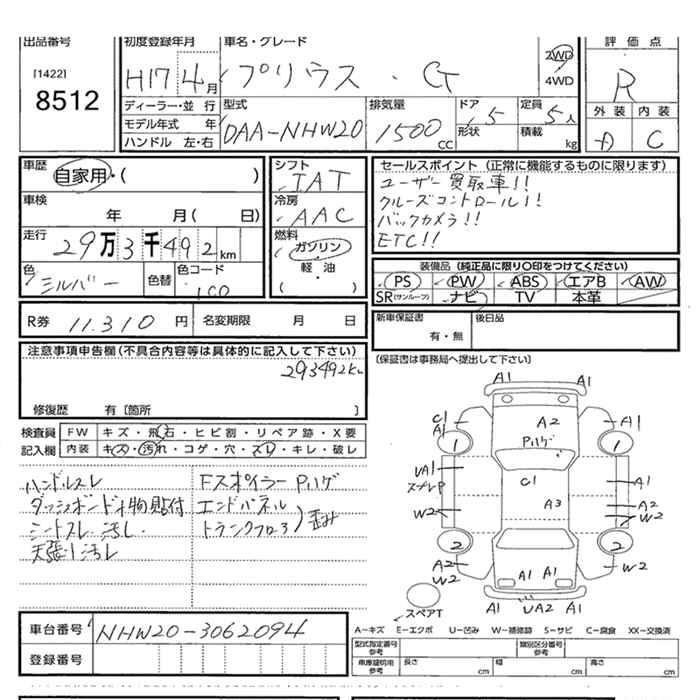 出品番号
[1422]
8512
初度登録年月
H17 4月
車名・グレード
プリウス・G
2WD
4WD
評価点
R
外装 内装
A C
ディーラー・並行
モデル年式 年
ハンドル 左・右
型式
DAA-NHW20
排気量
1500cc
ドア 5
形状
定員 5人
積載 kg
車歴
自家用・( )
車検
年 月( 日)
走行
29万3千492km
色
シルバー
色替
色コード
1C0
シフト
IAT
冷房
AAC
燃料
ガソリン・
軽・油
( )
セールスポイント(正常に機能するものに限ります)
ユーザー買取車!!
クルーズコントロール!!
バックカメラ!!
ETC!!
装備品(純正品に限り○印をつけてください)
PS PW ABS エアB AW
SR(サンルーフ) ナビ TV 本革
R券 11.310円
名変期限 月 日
新車保証書
有・無
後日品
(保証書は事務局へ提出して下さい)
注意事項申告欄(不具合内容等は具体的に記入して下さい)
293492km
修復歴 有〔箇所 〕
検査員 FW キズ・飛石・ヒビ割・リペア跡・X要
記入欄 内装 キズ・汚れ・コゲ・穴・スレ・キレ・破レ
ハンドルスレ
ダッシュボード小物貼付
シートスレ・汚レ・
天張リ汚レ
Fスポイラー Pハゲ
エンドパネル
トランクフロア)歪み
A1 A1
C1 A1
A2
Pハゲ
A1
1 1
UA1
スプレP
C1
A1
A3
A2
W2 W2
2 2
A2
W2
A1 A1
W2
A1 UA2 A1
スペアT
A-キズ E-エクボ U-凹み W-補修跡 S-サビ C-腐食 XX-交換済
車台番号 NHW20-3062094
登録番号
型式指定番号 参考
類別区分番号 参考
車庫証明用 参考
長さ cm
幅 cm
高さ cm